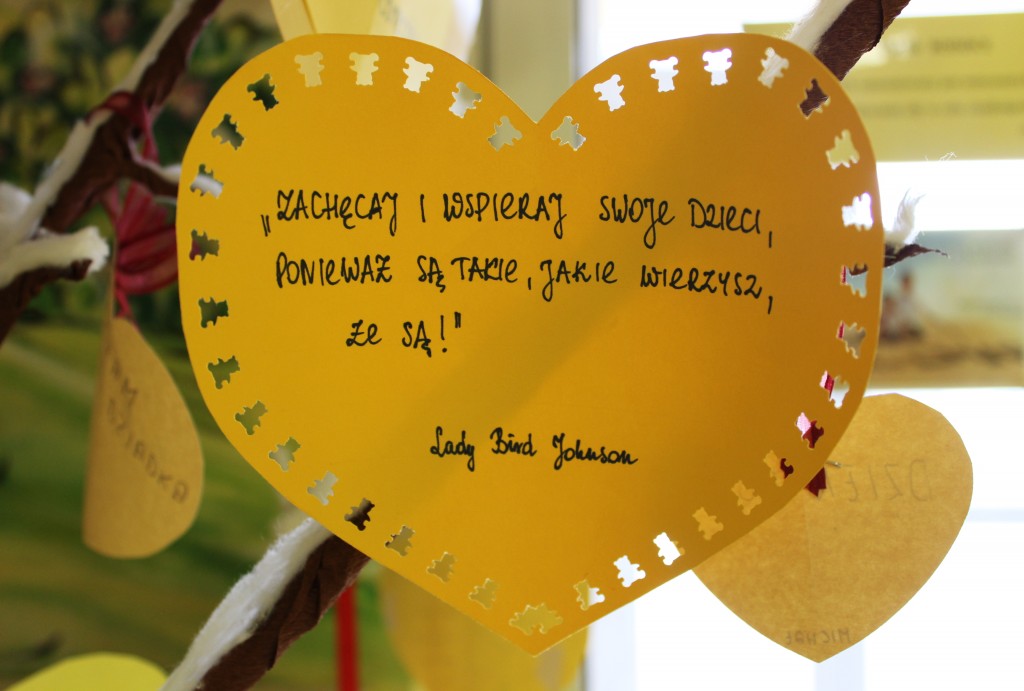 „ZACHĘCAJ I WSPIERAJ SWOJE DZIECI,
PONIEWAŻ SĄ TAKIE, JAKIE WIERZYSZ,
ŻE SĄ!"
Lady Bird Johnson
DZIADKA
MICHAŁ